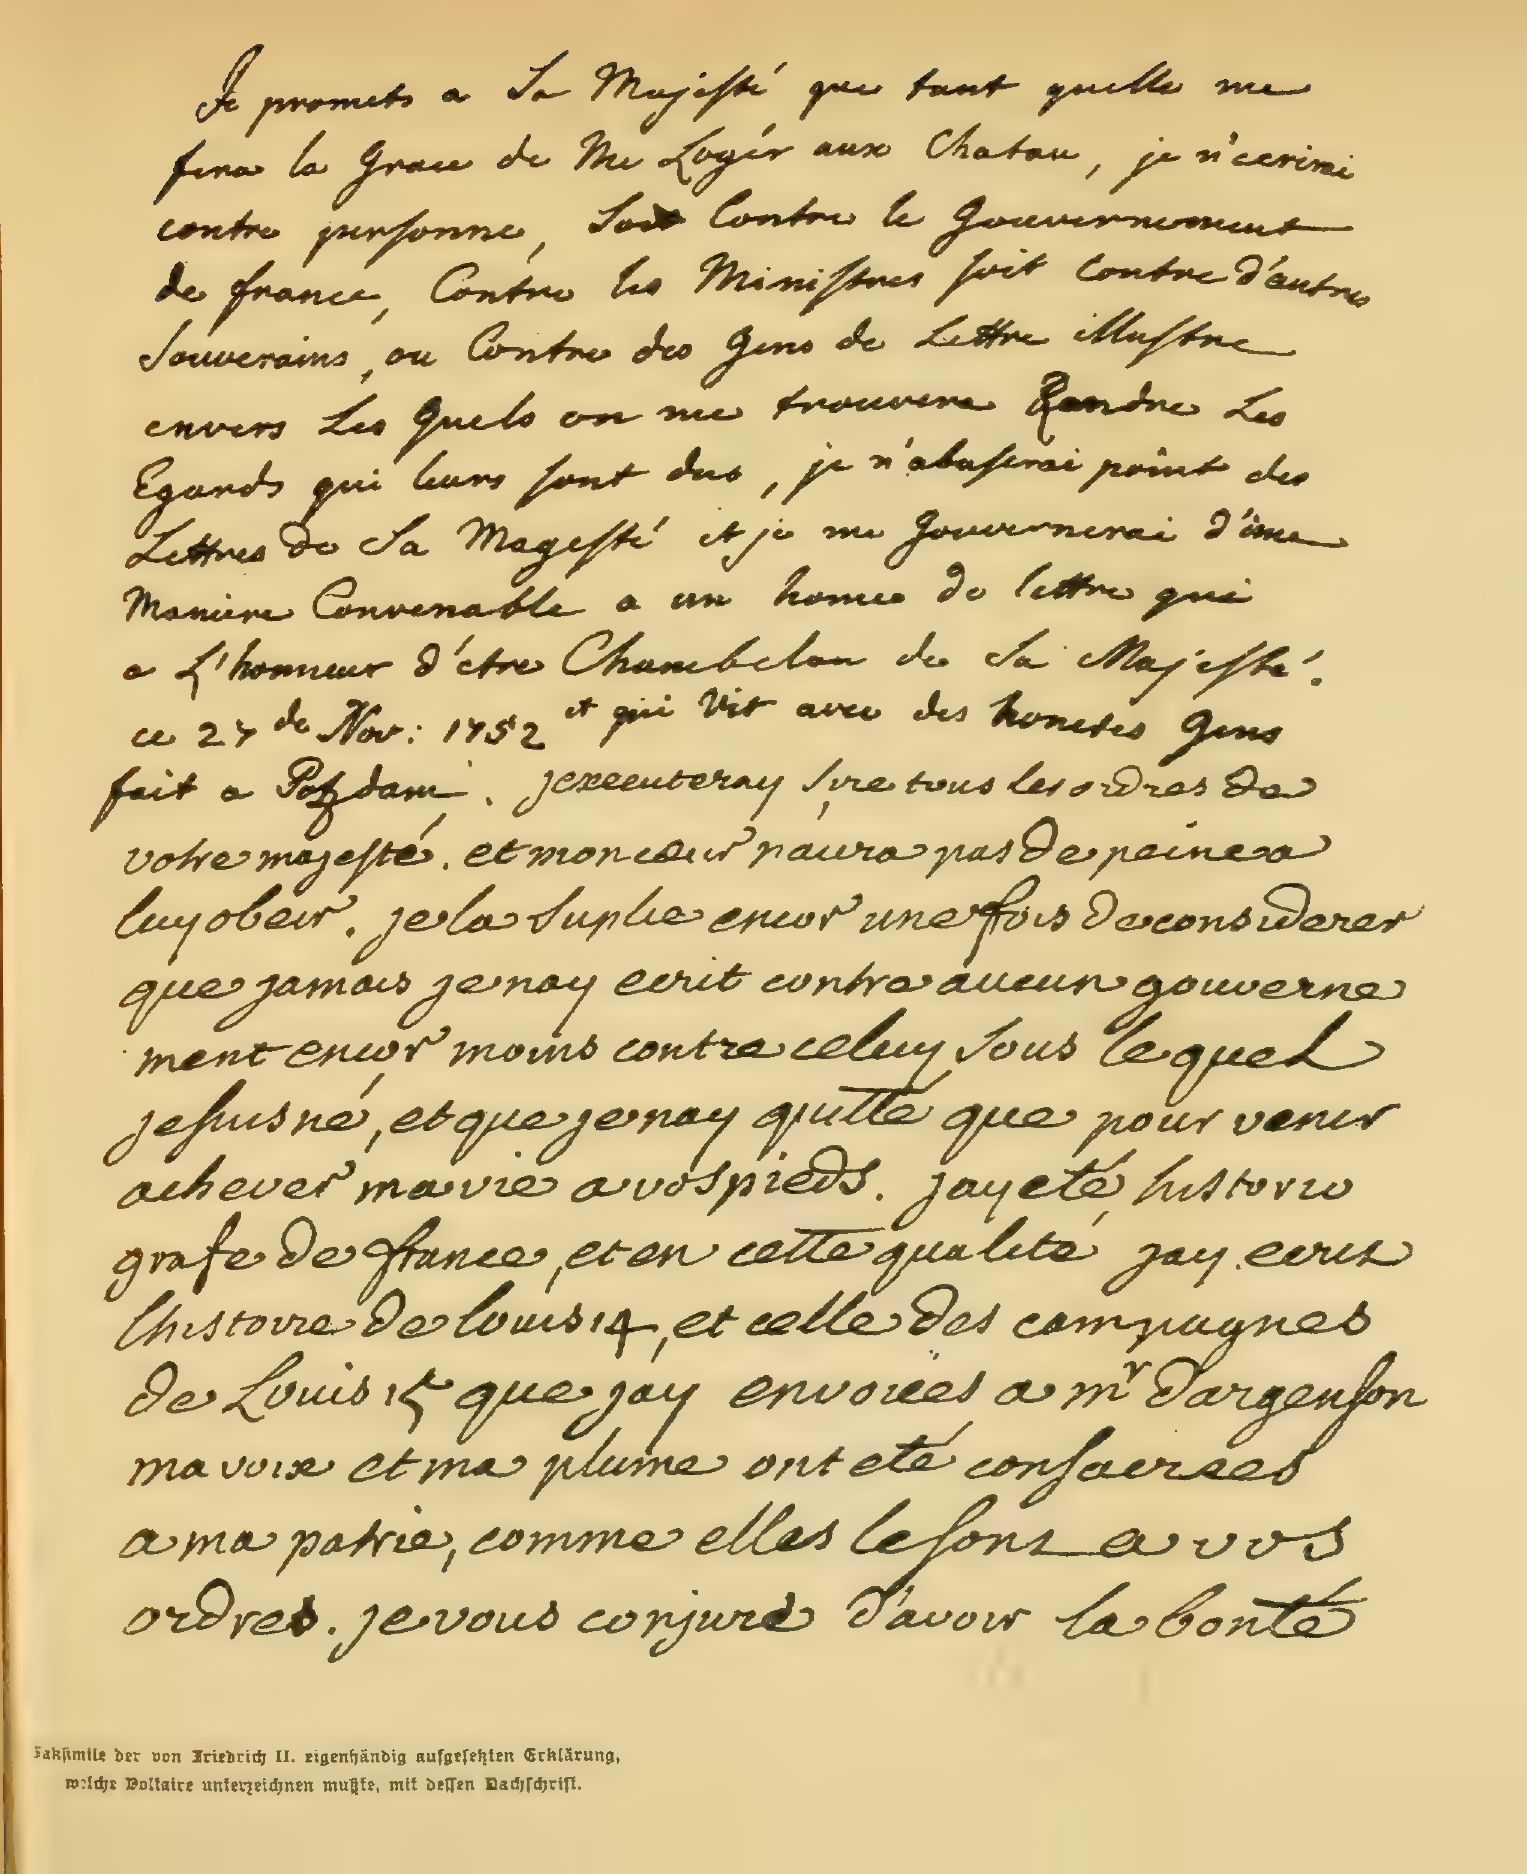 Je promets a Sa Majesté que tant quelle me
fera la Grace de Me Logér aux Chatau, je n'ecrirai
contre personne, Soit Contre le Gouvernement
de france, Contre les Ministres soit Contre d'autres
Souverains, ou Contre des Gens de Lettre illustre
envers Les Quels on me trouvera Randre Les
Egards qui leurs sont dus, je n'abuserai point des
Lettres de Sa Magesté et je me Gouvernerai d'une
Maniere Convenable a un home de lettre qui
a L'honneur d'étre Chambelan de Sa Majesté.
ce 27 de Nov: 1752 et qui Vit avec des honetes Gens
fait a Potzdam. jexecuteray Sire tous les ordres de
votre majesté. et mon cœur n'aura pas de peine a
luy obeir. je la Suplie encor une fois de considerer
que jamais je nay ecrit contre aucun gouverne
ment encor moins contre celuy Sous le quel
je suis né, et que je nay quitté que pour venir
achever ma vie a vos pieds. jay eté historio
grafe de france, et en cette qualité jay ecrit
lhistoire de louis 14, et celle des campagnes
de Louis 15 que jay envoiées a mr dargenson
ma voix et ma plume ont eté consacrees
a ma patrie, comme elles le sont a vos
ordres. je vous conjure d'avoir la bonté
Faksimile der von Friedrich II. eigenhändig aufgesetzten Erklärung,
welche Voltaire unterzeichnen mußte, mit dessen Nachschrift.